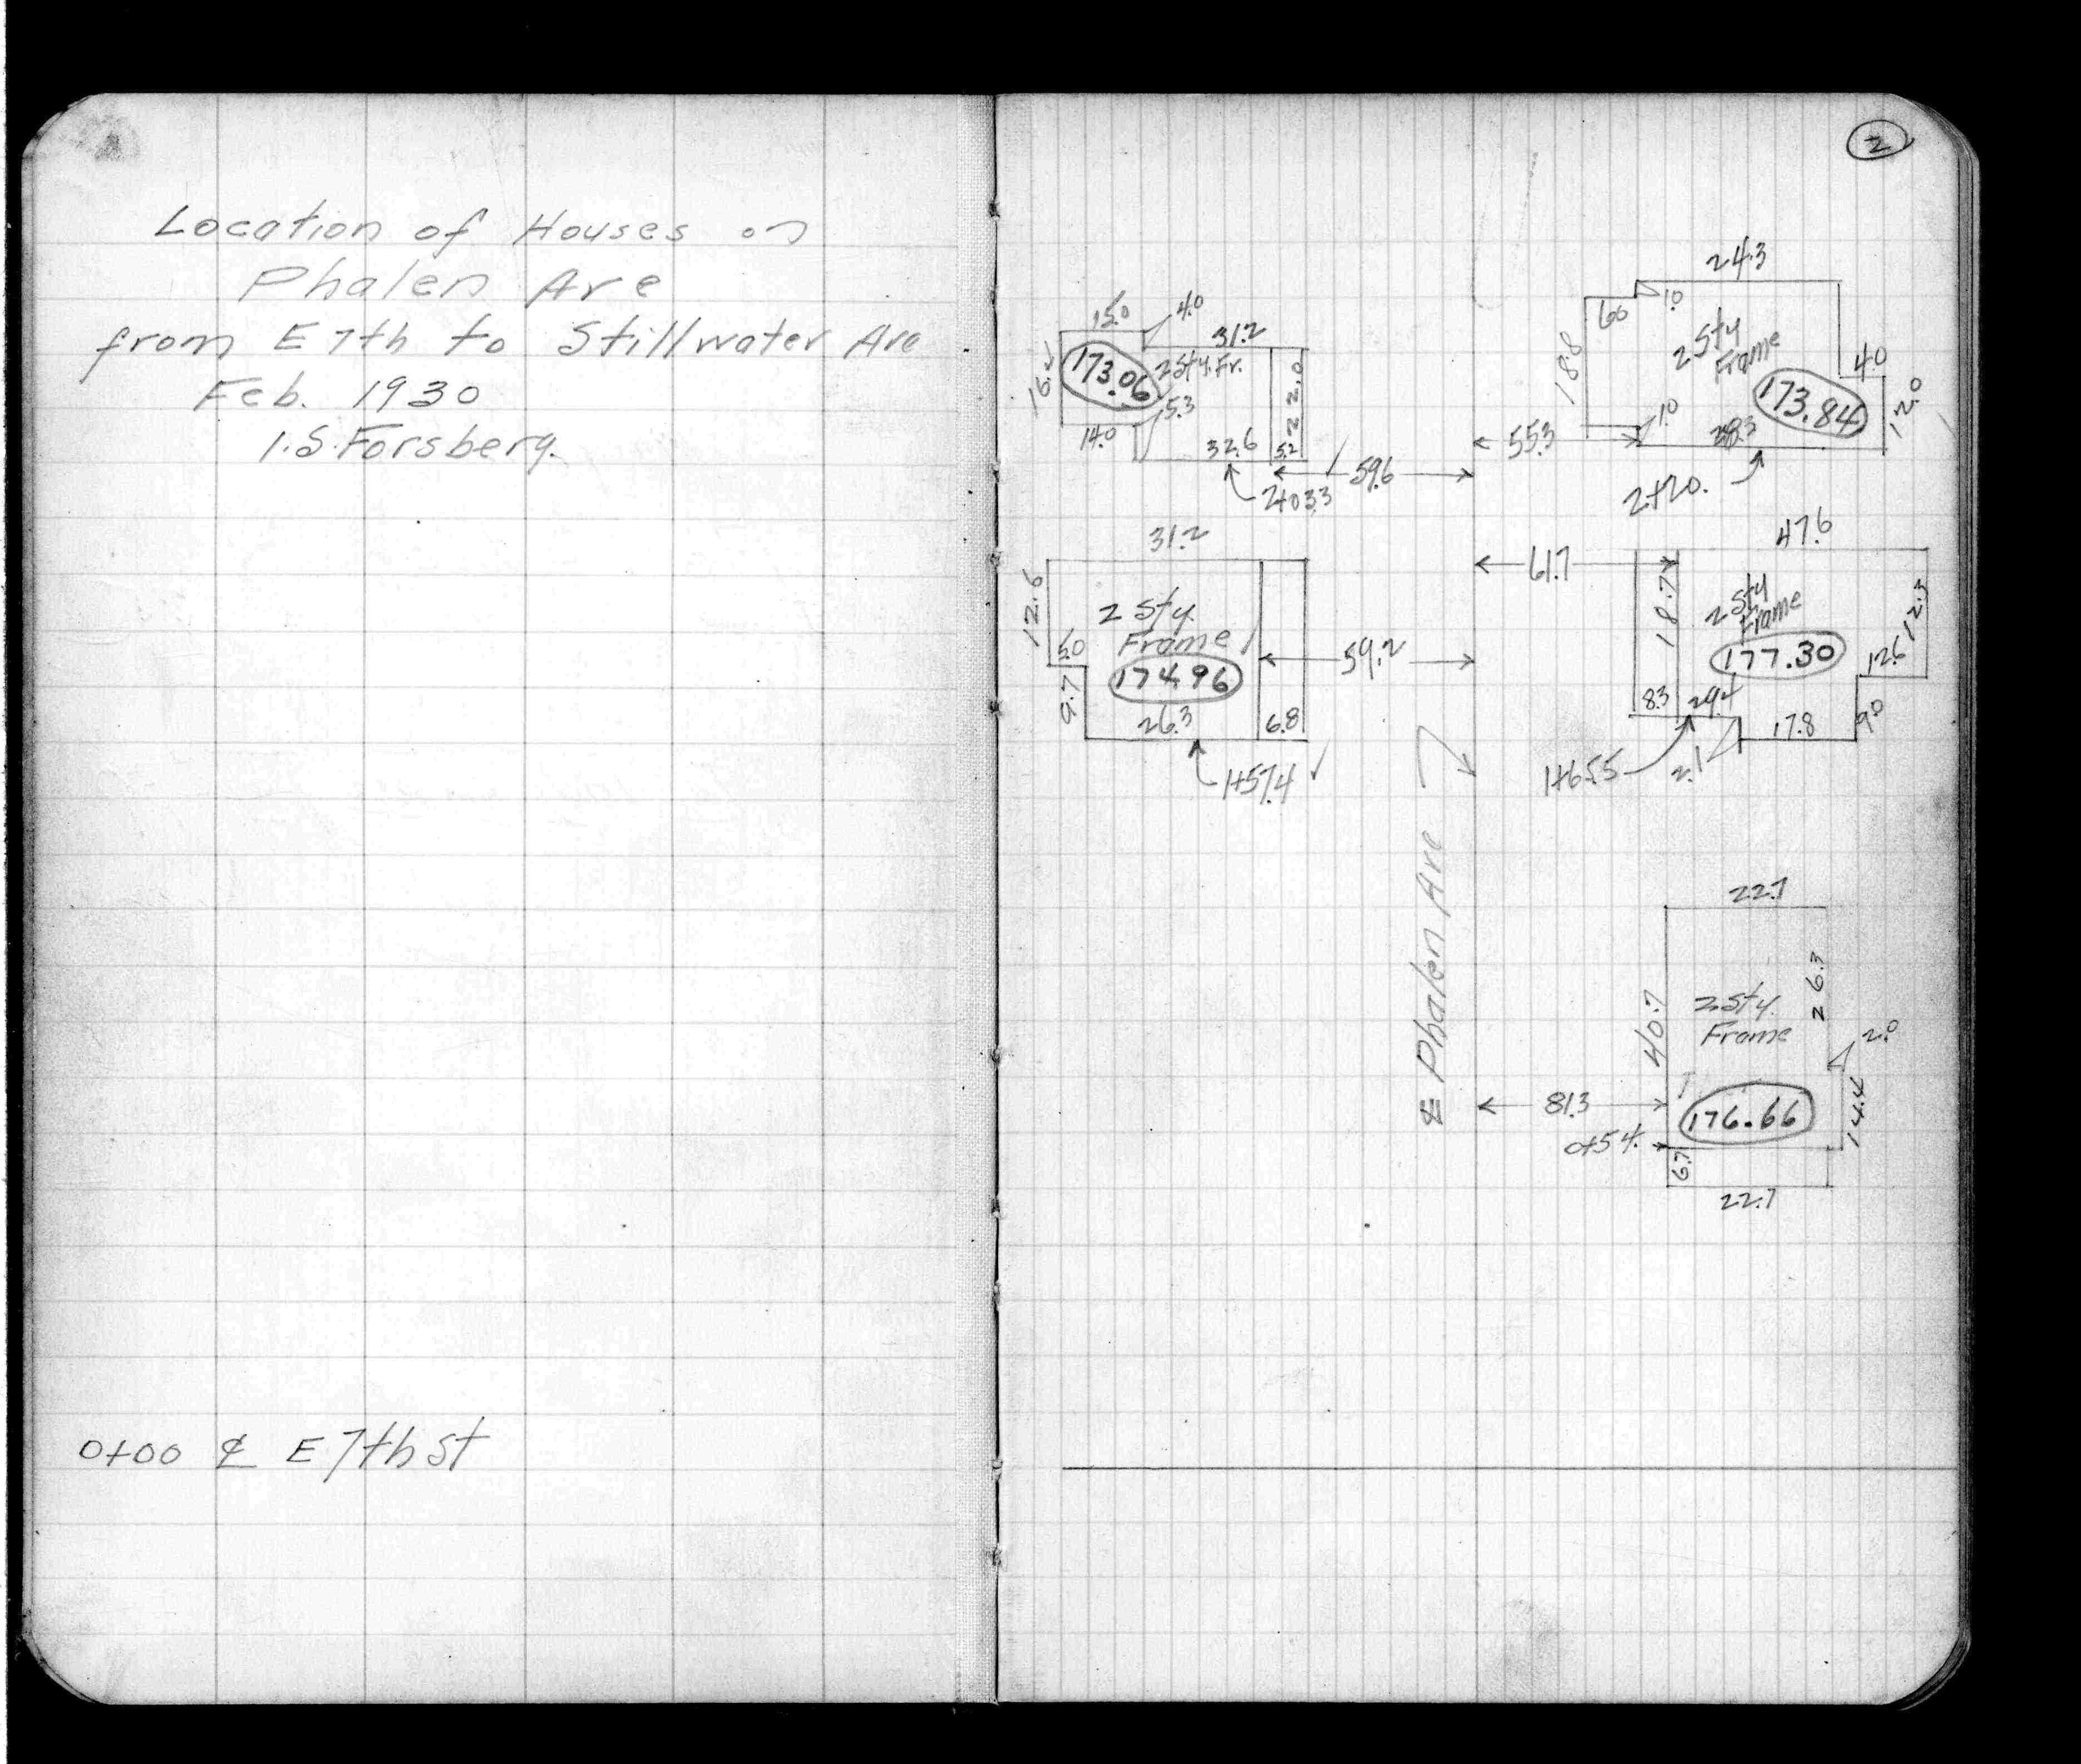 Location of Houses on
Phalen Ave
from E 7th to Stillwater Ave
Feb. 1930
I.S. Forsberg.
0+00 ℄ E 7th St
2
15.0
4.0
31.2
173.06
2 Sty. Fr.
22.0
5.3
14.0
32.6
5.2
59.6
2+03.3
24.3
6.0
1.0
18.8
2 Sty
Frame
4.0
173.84
12.0
1.0
28.3
55.3
2+20.
31.2
12.6
2 Sty.
Frame
5.0
174.96
9.7
26.3
6.8
59.2
1+57.4
47.6
61.7
18.7
2 Sty
Frame
12.3
177.30
12.6
8.3
29.4
17.8
9.0
2.1
1+65.5
℄ Phalen Ave
22.7
26.3
40.7
2 Sty.
Frame
2.0
81.3
176.66
14.4
0+54.
6.7
22.7